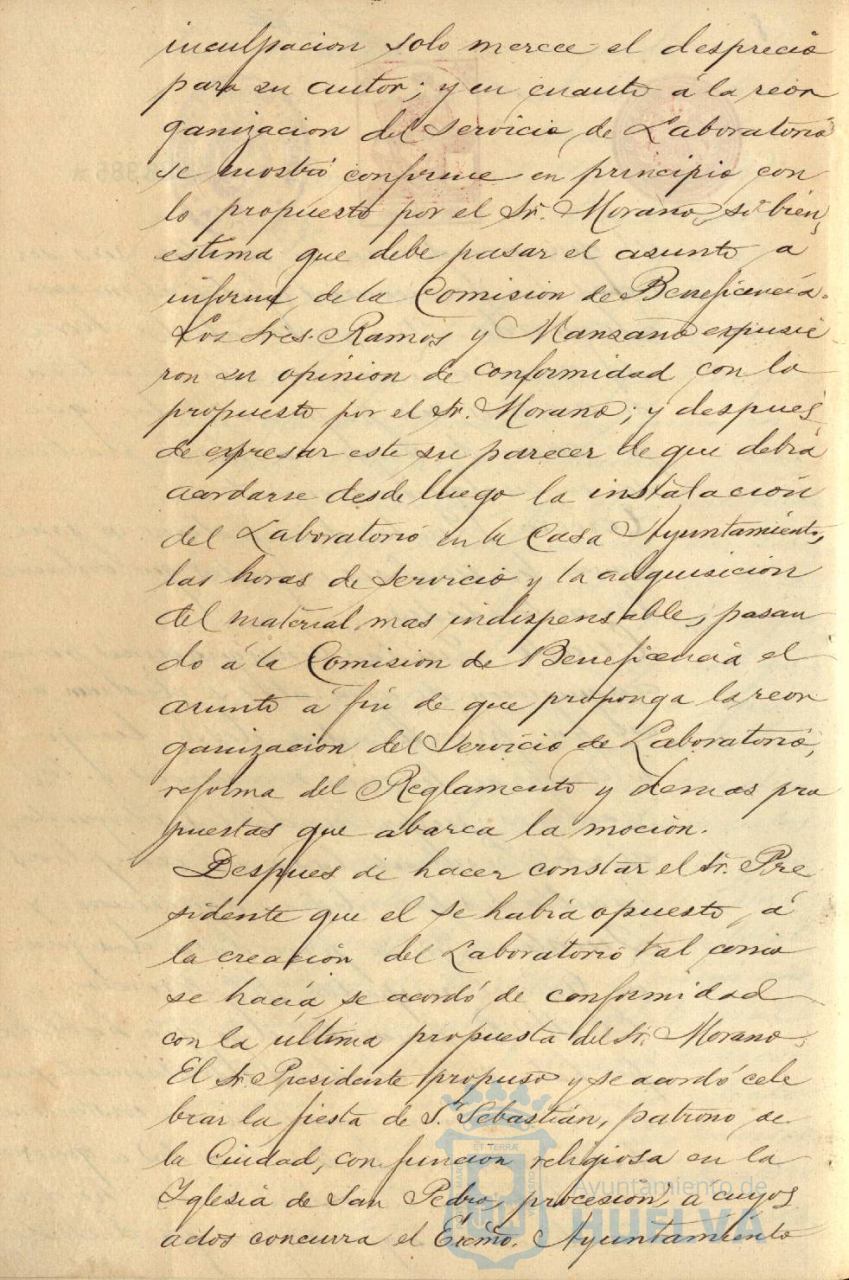 inculpacion solo merece el desprecio
para su autor; y en cuanto á la reor
ganizacion del servicio de Laboratorio
se mostró conforme en principio con
lo propuesto por el Sr. Morano, si bien,
estima que debe pasar el asunto a
informe de la Comision de Beneficencia.
Los Sres. Ramos y Manzano expusie
ron su opinion de conformidad con lo
propuesto por el Sr. Morano; y despues
de expresar este su parecer de que debia
acordarse desde luego la instalación
del Laboratorio en la Casa Ayuntamiento,
las horas de servicio y la adquisicion
del material mas indispensable, pasan
do á la Comision de Beneficencia el
asunto á fin de que proponga la reor
ganizacion del servicio de Laboratorio,
reforma del Reglamento y demas pro
puestas que abarca la moción.
Despues de hacer constar el Sr. Pre
sidente que el se habia opuesto á
la creación del Laboratorio tal como
se hacia se acordó de conformidad
con la última propuesta del Sr. Morano.
El Sr. Presidente propuso y se acordó cele
brar la fiesta de S. Sebastián, patrono de
la Ciudad, con funcion religiosa en la
Iglesia de San Pedro, procesión, a cuyos
actos concurra el Excmo. Ayuntamiento
Ayuntamiento de
HUELVA